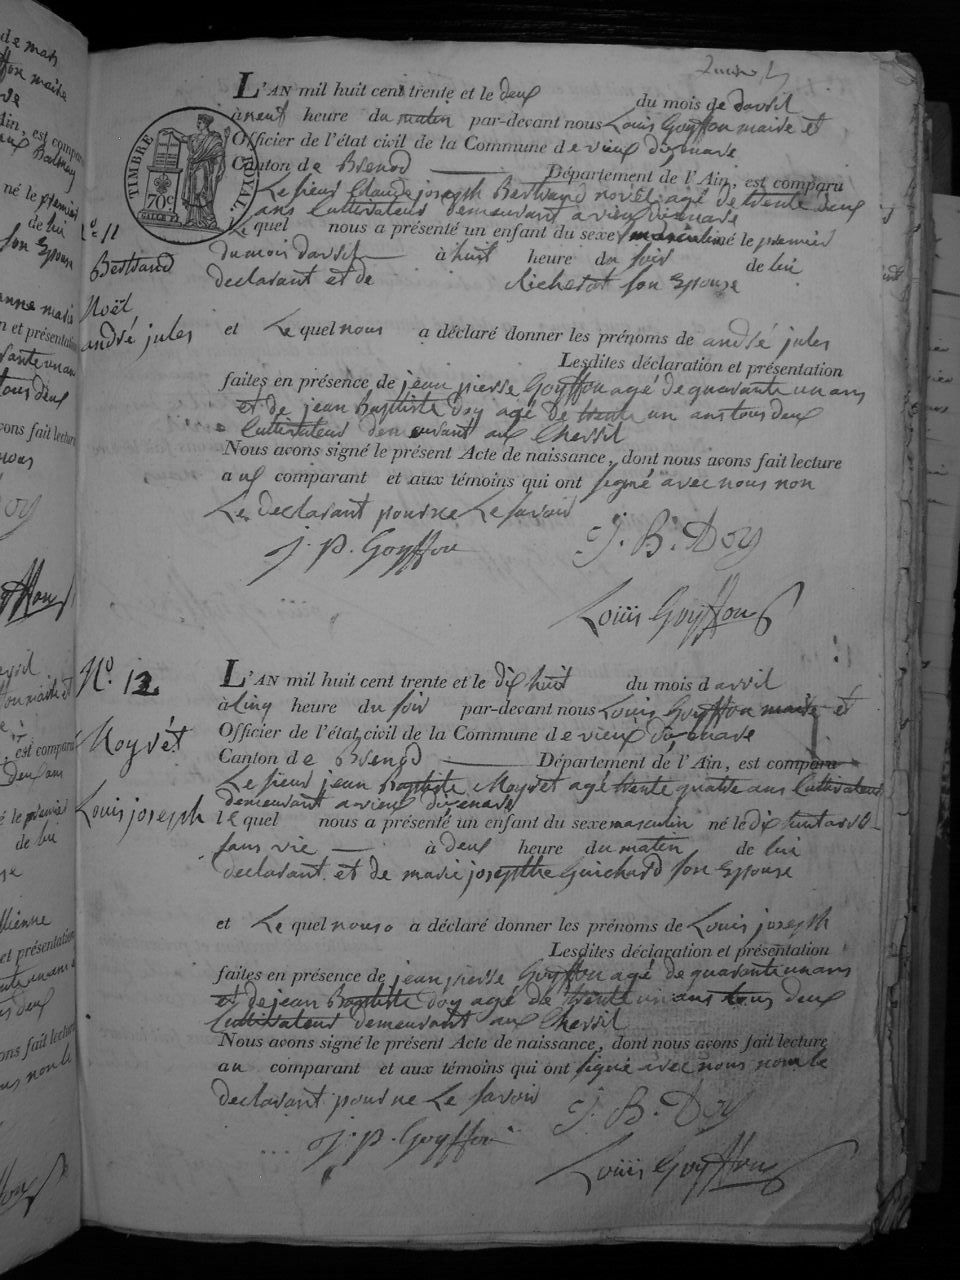 L'AN mil huit cent trente et le deux du mois de davril
à neuf heure du matin par-devant nous Louis Goyffon maire et
Officier de l'état civil de la Commune de vieux dizenave
Canton de Brenod Département de l'Ain, est comparu
Le sieur Claude joseph Bertrand novël agé de trente deux
ans Cultivateur demeurant a vieux dizenave
Le quel nous a présenté un enfant du sexe masculin né le premier
du mois davril à huit heure du soir de lui
declarant et de Richerot son Epouse
N.o 11
Bertrand
Noël
andré jules
et Le quel nous a déclaré donner les prénoms de andré jules
Lesdites déclaration et présentation
faites en présence de jean pierre Goyffon agé de quarante un ans
et de jean Baptiste Doy agé de trente un ans tous deux
Cultivateur demeurant aux Chevril
Nous avons signé le présent Acte de naissance, dont nous avons fait lecture
aux comparant et aux témoins qui ont signé avec nous non
Le declarant pour ne Le savoir
J. P. Goyffon J. B. Doy
Louis Goyffon
TIMBRE ROYAL
70c
N.o 12
Moyrét
Louis joseph
L'AN mil huit cent trente et le dix huit du mois d avril
à Cinq heure du soir par-devant nous Louis Goyffon maire et
Officier de l'état civil de la Commune de vieux dizenave
Canton de Brenod Département de l'Ain, est comparu
Le sieur jean Baptiste Moyret agé trente quatre ans Cultivateur
demeurant a vieux dizenave
le quel nous a présenté un enfant du sexe masculin né le dix huit avril
sans vie à deux heure du matin de lui
declarant et de marie josephte Guichard son Epouse
et Le quel nous a déclaré donner les prénoms de Louis joseph
Lesdites déclaration et présentation
faites en présence de jean pierre Goyffon agé de quarante un ans
et de jean Baptiste Doy agé de trente un ans tous deux
Cultivateur demeurant aux Chevril
Nous avons signé le présent Acte de naissance, dont nous avons fait lecture
au comparant et aux témoins qui ont signé avec nous non le
declarant pour ne Le savoir
J. P. Goyffon J. B. Doy
Louis Goyffon